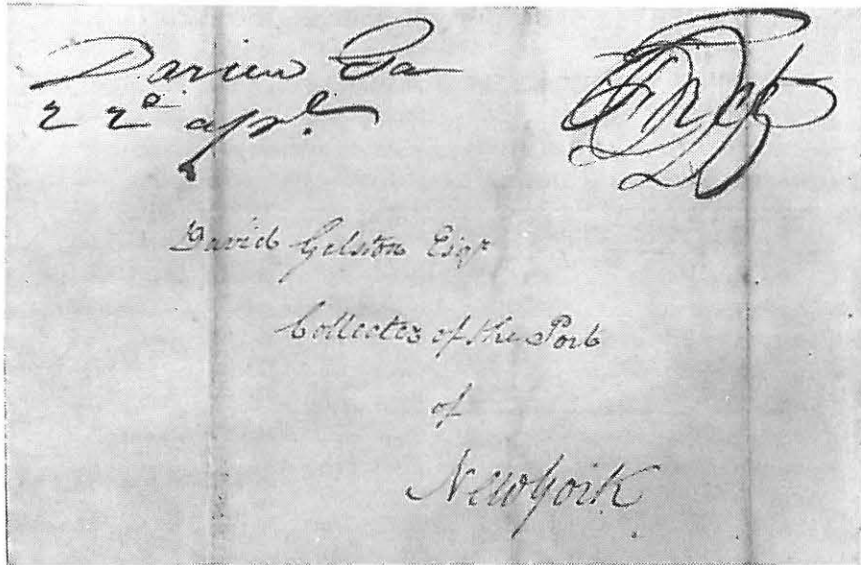 Darien Ga
22^d apl.
Free
David Gelston Esqr
Collector of the Port
of
New York